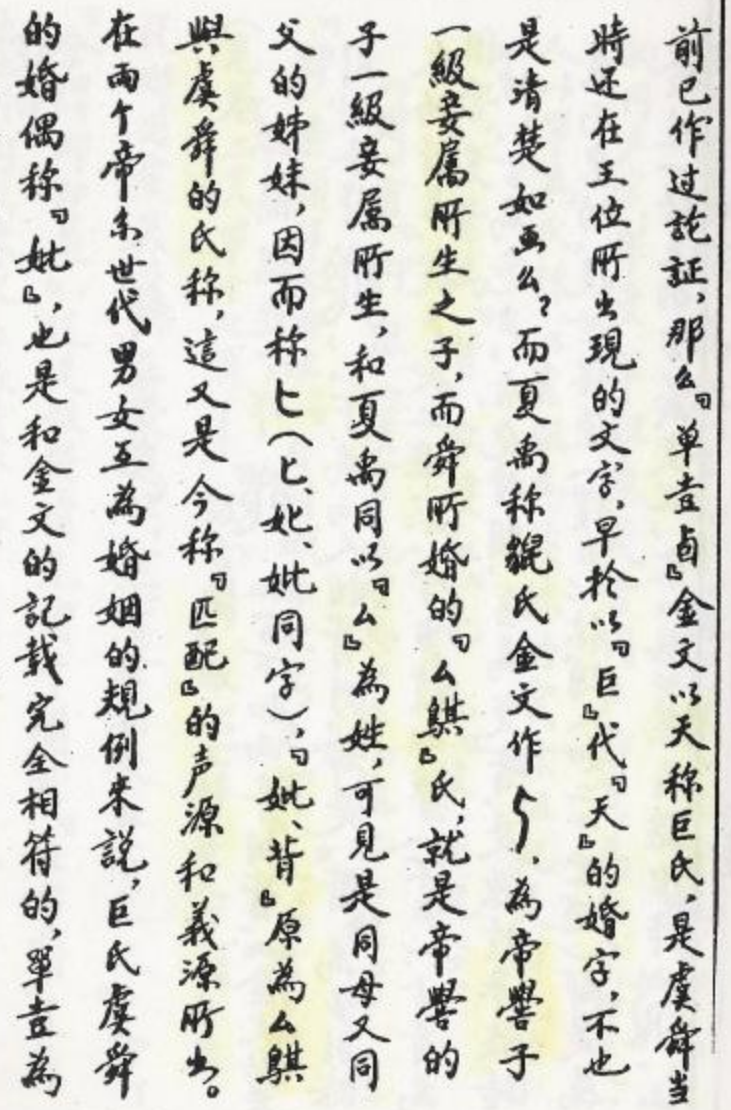 前已作过論証，那么『单壴卣』金文以天称巨氏，是虞舜当
時还在王位所出現的文字，早於以『巨』代『天』的婚字，不也
是清楚如画么？而夏禹称鯤氏金文作，為帝嚳子
一級妾属所生之子，而舜所婚的『么鶀』氏，就是帝嚳的
子一級妾属所生，和夏禹同以『么』為姓，可見是同母又同
父的姊妹，因而称匕（匕、妣、妣同字），『妣、背』原為么鶀
與虞舜的氏称，這又是今称『匹配』的声源和義源所出。
在兩个帝系世代男女互為婚姻的規例来説，巨氏虞舜
的婚偶称『妣』，也是和金文的記載完全相符的，單壴為